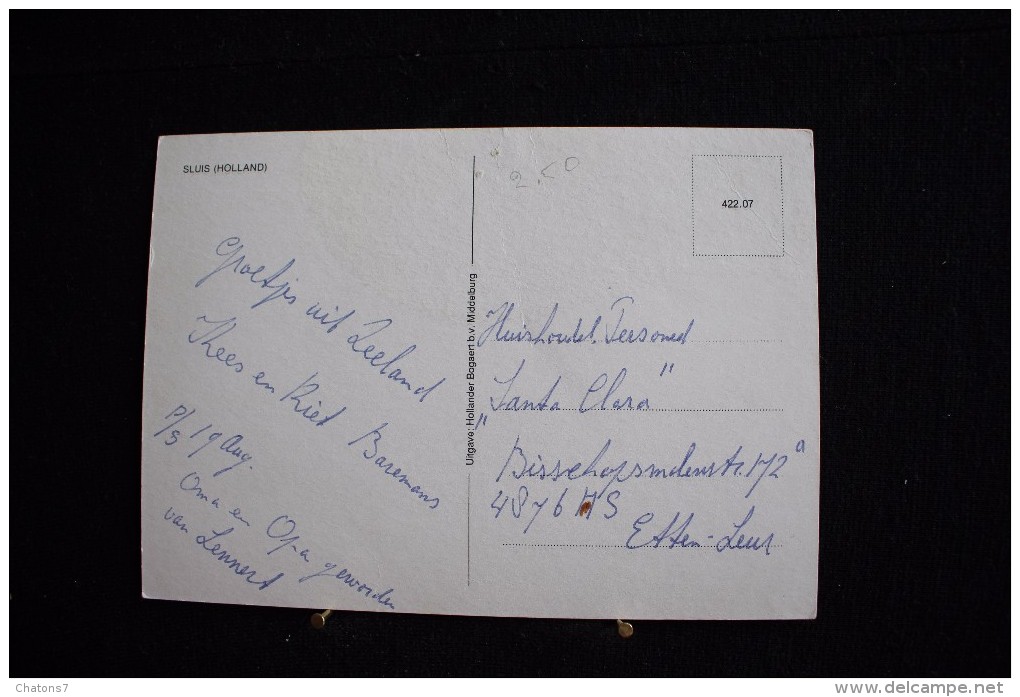 SLUIS (HOLLAND)
2.50
422.07
Groetjes uit Zeeland
Thees en Riet Baremans
P/S 19 Aug.
Oma en Opa geworden
van Lennert
Uitgave: Hollander Bogaert b.v. Middelburg
Huishoudel. Personeel
"Santa Clara"
172a
4876 HS
Etten-Leur
Chatons7
www.delcampe.net